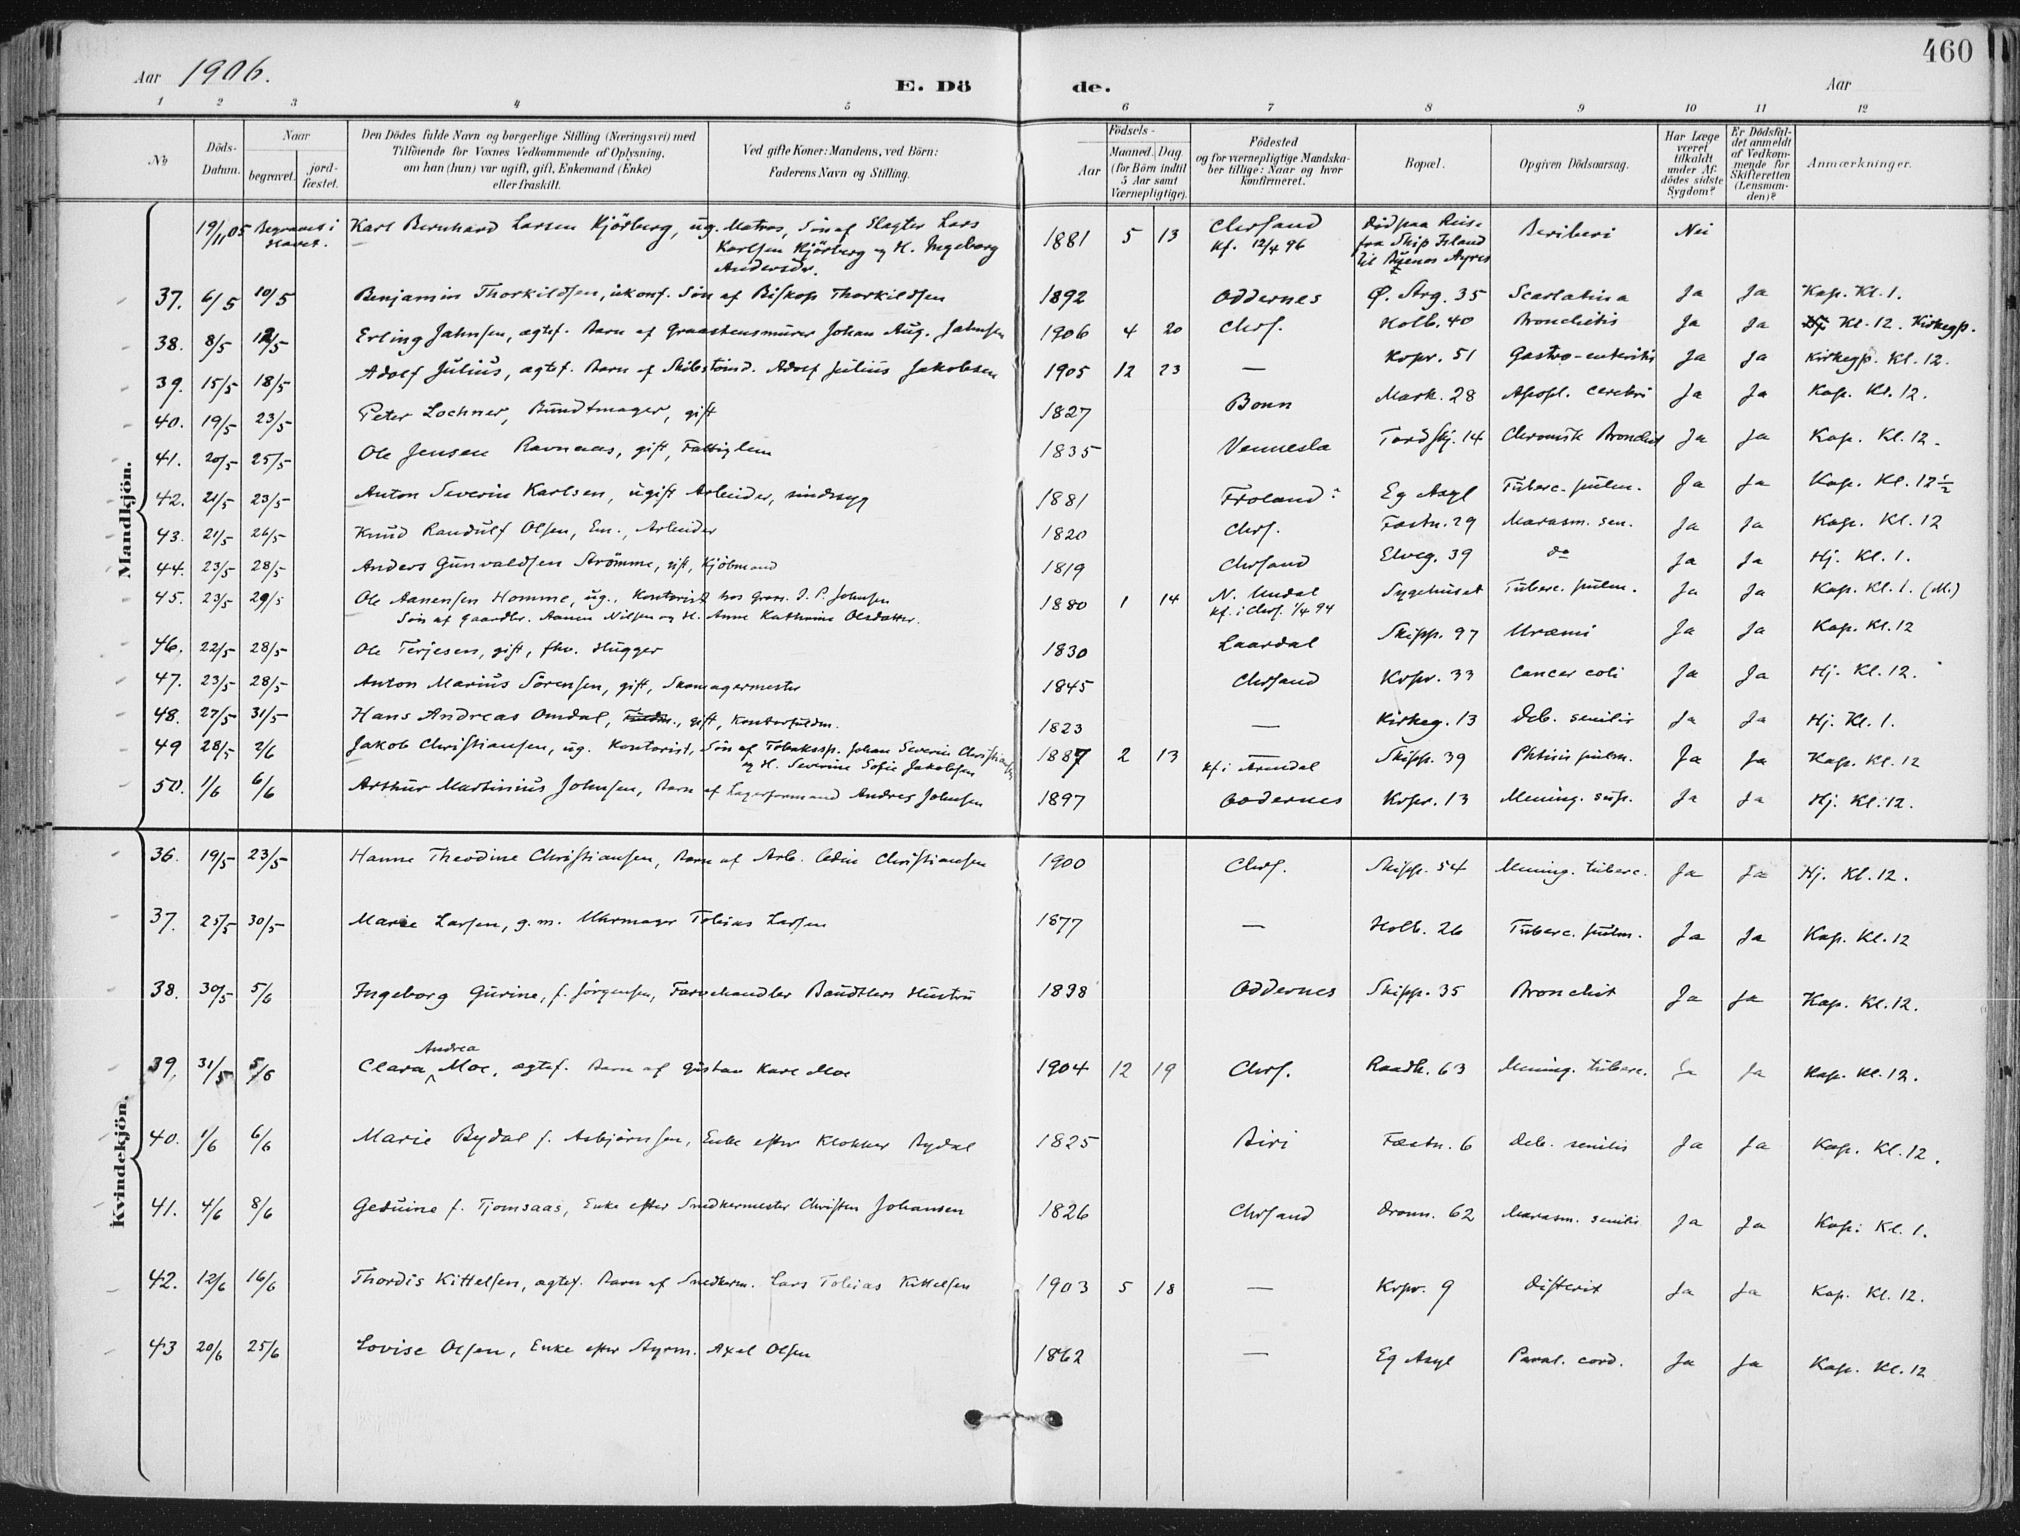 460
Aar 1906.
E. Dö de.
Aar
1 2 3 4 5 6 7 8 9 10 11 12
No
Döds-Datum.
Naar begravet. jordfæstet.
Den Dödes fulde Navn og borgerlige Stilling (Næringsvei) med Tilföiende for Voxnes Vedkommende af Oplysning, om han (hun) var ugift, gift, Enkemand (Enke) eller fraskilt.
Ved gifte Koner: Mandens, ved Börn: Faderens Navn og Stilling.
Födsels- Aar Maaned. Dag (for Börn indtil 5 Aar samt Værnepligtige).
Födested og for værnepligtige Mandskaber tillige: Naar og hvor Konfirmeret.
Bopæl.
Opgiven Dödsaarsag.
Har Læge været tilkaldt under Afdödes sidste Sygdom?
Er Dödsfaldet anmeldt af Vedkommende for Skifteretten (Lensmanden)?
Anmærkninger.
Mandkjön.
19/11 05 Begravet i Havet. Karl Bernhard Larsen Kjörberg, ug. Matros, Sön af Slagter Lars Karlsen Kjörberg og H. Ingeborg Andersdr. 1881 5 13 Chrsand kf. 12/4 96 Död paa Reise fra Ship Island til Buenos Ayres Beriberi Nei
37. 6/5 10/5 Benjamin Thorkildsen, ukonf. Sön af Biskop Thorkildsen 1892 Oddernes Ø. Strg. 35 Scarlatina Ja Ja Kap. Kl. 1.
38. 8/5 12/5 Erling Jahnsen, agtef. Barn af Graastensmurer Johan Aug. Jahnsen 1906 4 20 Chrs. Holb. 40 Bronchitis Ja Ja Kl. 12. Kirkegp.
39. 15/5 18/5 Adolf Julius, agtef. Barn af Skibstömd. Adolf Julius Jakobsen 1905 12 23 — Kopr. 51 Gastro-enteritis Ja Ja Kirkegp. Kl. 12.
40. 19/5 23/5 Peter Lochner, Bundtmager, gift 1827 Bonn Mark. 28 Apopl. cerebri Ja Ja Kap. Kl. 12.
41. 20/5 25/5 Ole Jensen Ravnaas, gift, Fattiglem 1835 Vennesla Tordskj. 14 Chronisk Bronchit Ja Ja Kap. Kl. 12.
42. 21/5 23/5 Anton Severin Karlsen, ugift Arbeider, sindssyg 1881 Froland: Eg Asyl Tuberc. pulm. Ja Ja Kap. Kl. 12 1/2
43. 21/5 26/5 Knud Randulf Olsen, Em., Arbeider 1820 Chrs. Fæstn. 29 Marasm. sen. Ja Ja Kap. Kl. 12
44. 23/5 28/5 Anders Gunvaldsen Strömme, gift, Kjöbmand 1819 Chrsand Elveg. 39 do Ja Ja Hj. Kl. 1.
45. 23/5 29/5 Ole Aanensen Homme, ug., Kontorist hos gross. I. P. Johnsen Sön af Gaardbr. Aanen Nilsen og H. Anne Kathrine Olsdatter. 1880 1 14 N. Undal kf. i Chrs. 1/4 94 Sygehuset Tuberc. pulm. Ja Ja Kap. Kl. 1. (M.)
46. 22/5 28/5 Ole Terjesen, gift, fhv. Hugger 1830 Laardal Skipp. 97 Uræmi Ja Ja Kap. Kl. 12
47. 23/5 28/5 Anton Marius Sörensen, gift, Skomagermester 1845 Chrsand Kopr. 33 Cancer coli Ja Ja Hj. Kl. 12.
48. 27/5 31/5 Hans Andreas Omdal, Fuldm., gift, Kontorfuldm. 1823 — Kirkeg. 13 Deb. senilis Ja Ja Hj. Kl. 1.
49 28/5 2/6 Jakob Christiansen, ug. Kontorist, Sön af Tobakssp. Johan Severin Christiansen og H. Severine Sofie Jakobsen 1887 2 13 — kf. i Arendal Skipp. 39 Phtisis pulm. Ja Ja Kap. Kl. 12
50. 1/6 6/6 Arthur Martinius Johnsen, Barn af Lagerformand Andres Johnsen 1897 Oddernes Kopr. 13 Mening. sup. Ja Ja Hj. Kl. 12.
Kvindekjön.
36. 19/5 23/5 Hanne Theodine Christiansen, Barn af Arb. Edin Christiansen 1900 Chrs. Skipp. 54 Mening. tuberc. Ja Ja Hj. Kl. 12.
37. 25/5 30/5 Marie Larsen, g. m. Uhrmager Tobias Larsen 1877 — Holb. 26 Tuberc. pulm. Ja Ja Kap. Kl. 12
38. 30/5 5/6 Ingeborg Gurine, f. Jörgensen, Farvehandler Baudtlers Hustru 1838 Oddernes Skipp. 35 Bronchit Ja Ja Kap. Kl. 12.
39. 31/5 5/6 Clara Andrea Moe, agtef. Barn af Gustav Karl Moe 1904 12 19 Chrs. Raadh. 63 Mening. tuberc. Ja Ja Kap. Kl. 12.
40. 1/6 6/6 Marie Bydal f. Asbjörnsen, Enke efter Klokker Bydal 1825 Biri Fæstn. 6 Deb. senilis Ja Ja Kap. Kl. 12.
41. 4/6 8/6 Geduine f. Tjomsaas, Enke efter Snedkermester Christen Johansen 1826 Chrsand Dronn. 62 Marasm. senilis Ja Ja Kap. Kl. 1.
42. 12/6 16/6 Thordis Kittelsen, agtef. Barn af Snedkerm. Lars Tobias Kittelsen 1903 5 18 — Kopr. 9 Difterit Ja Ja Kap. Kl. 12.
43 20/6 25/6 Lovise Olsen, Enke efter Styrm. Axel Olsen 1862 — Eg Asyl Paral. cord. Ja Ja Kap. Kl. 12